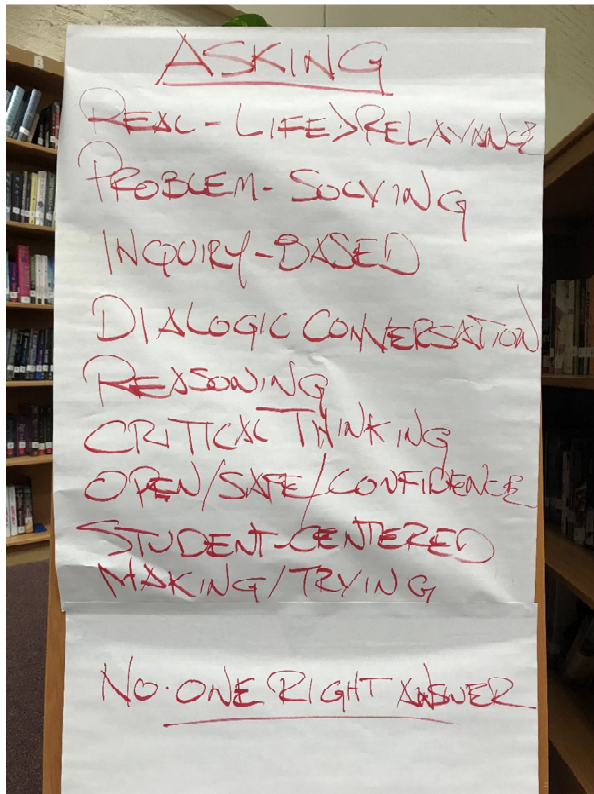 ASKING
REAL-LIFE>RELAVANCE
PROBLEM-SOLVING
INQUIRY-BASED
DIALOGIC CONVERSATION
REASONING
CRITICAL THINKING
OPEN/SAFE/CONFIDENCE
STUDENT-CENTERED
MAKING/TRYING
NO·ONE RIGHT ANSWER